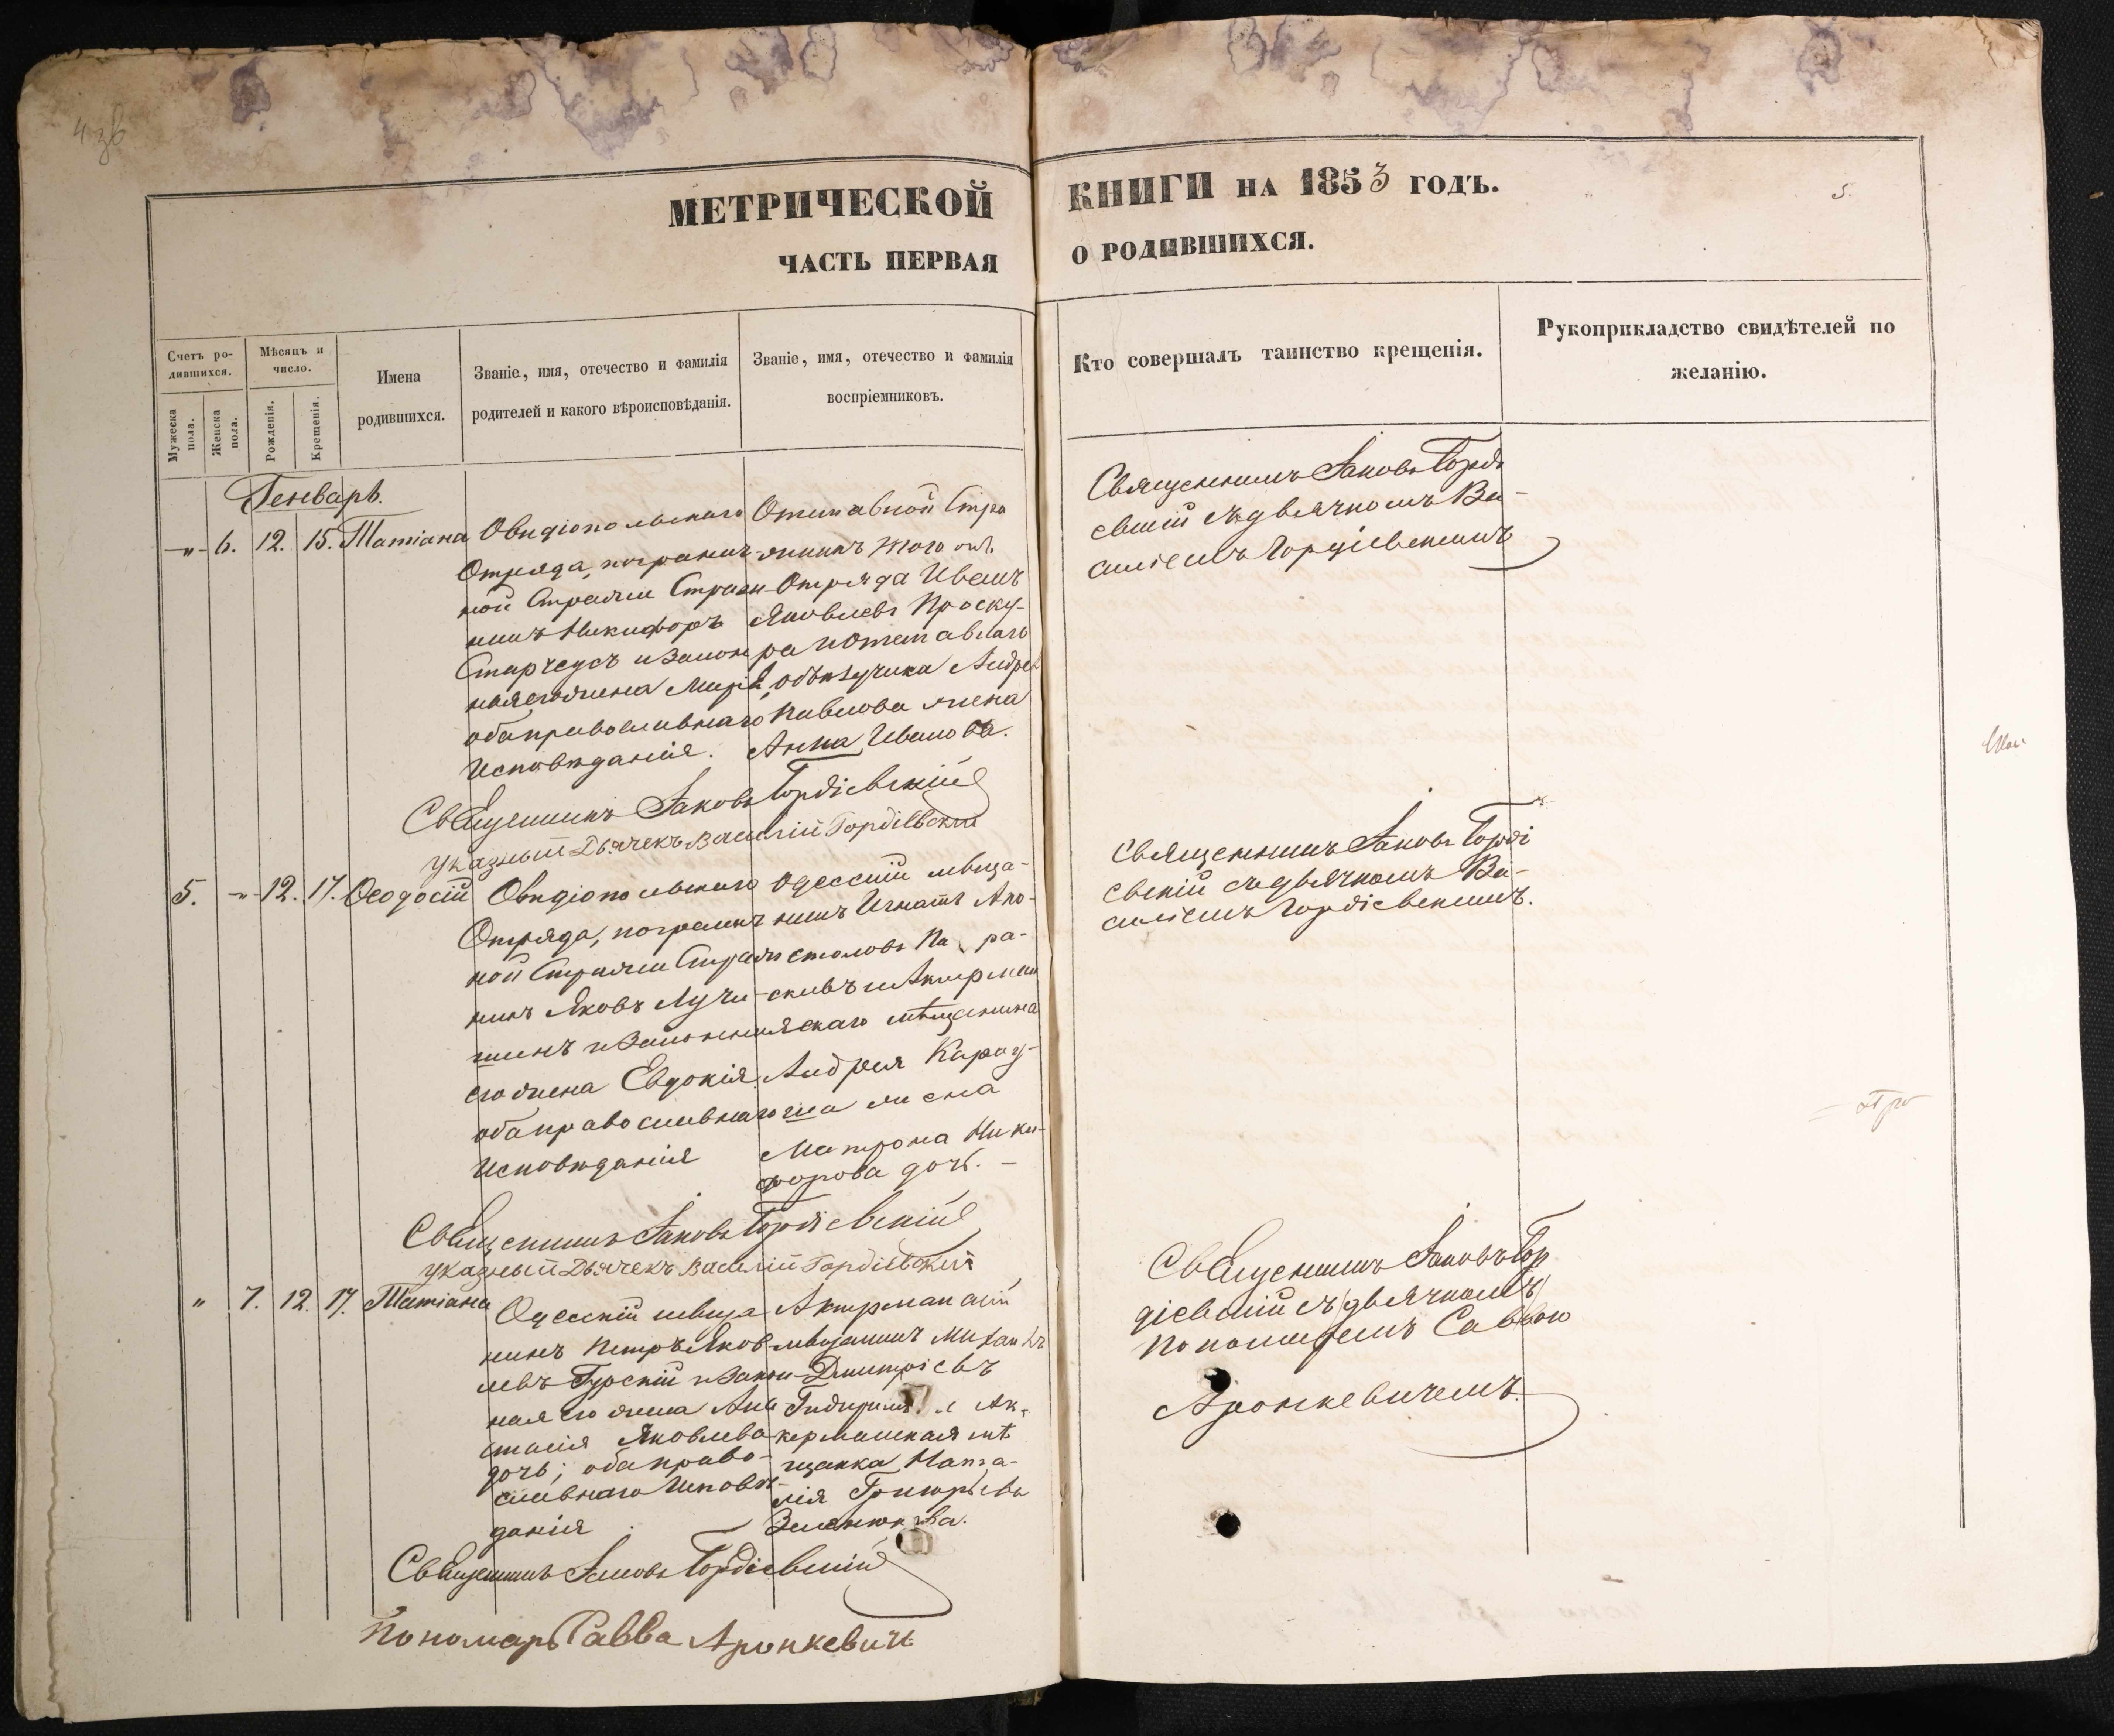 МЕТРИЧЕСКОЙ КНИГИ НА 1853 ГОДЪ.
ЧАСТЬ ПЕРВАЯ О РОДИВШИХСЯ.
5.
Счетъ ро-
дившихся.
Мужеска
пола.
Женска
пола.
Мѣсяцъ и
число.
Рожденія.
Крещенія.
Имена
родившихся.
Званіе, имя, отечество и фамилія
родителей и какого вѣроисповѣданія.
Званіе, имя, отечество и фамилія
воспріемниковъ.
Кто совершалъ таинство крещенія.
Рукоприкладство свидѣтелей по
желанію.
Генварь.
-"- 6. 12. 15. Татіана
Овидіопольскаго
Отряда, погранич-
ной Стражи Страж-
никъ Никифоръ
Старчеусъ и Закон-
ная его жена Марія,
оба православнаго
Исповѣданія.
Отставной Стра
жникъ того
Отряда Иванъ
Яковлевъ Проску-
ра и Отставнаго
объѣздчика Андрея
Павлова жена
Анна Иванова.
Священникъ Іаковъ Горді
евскій съ дьячкомъ Ва-
силіемъ Гордіевскимъ
Священникъ Іаковъ Гордіевскій
указный Дьячекъ Василій Гордіевскій
5. -"- 12. 17. Ѳеодосій
Овидіопольскаго
Отряда, погранич
ной Стражи Страж
никъ Яковъ Лучи-
шинъ и Законная
его жена Евдокія
оба православнаго
Исповѣданія
Одесскій мѣща-
нинъ Игнатъ Апо-
столовъ Па ра-
скивъ и Акерман
скаго мѣщанина
Андрея Карау-
ша жена
Матрона Ники-
форова дочь. -
Священникъ Іаковъ Горді
евскій съ дьячкомъ Ва-
силіемъ Гордіевскимъ.
Священникъ Іаковъ Гордіевскій
указный Дьячекъ Василій Гордіевскій
" 7. 12. 17. Татіана
Одесскій мѣща
нинъ Петръ Яков
левъ Гурскій и Закон-
ная его жена Ана
стасія Яковлева
дочь; оба право-
славнаго Исповѣ-
данія
Акерманскій
мѣщанинъ Михаилъ
Дмитріевъ
Ак-
керманская мѣ
щанка Ната-
лія Григорьева
Священникъ Іаковъ Гор
діевскій съ дьячкомъ
Пономаремъ Саввою
Аронкевичемъ.
Священникъ Іаковъ Гордіевскій
Пономарь Савва Аронкевичъ